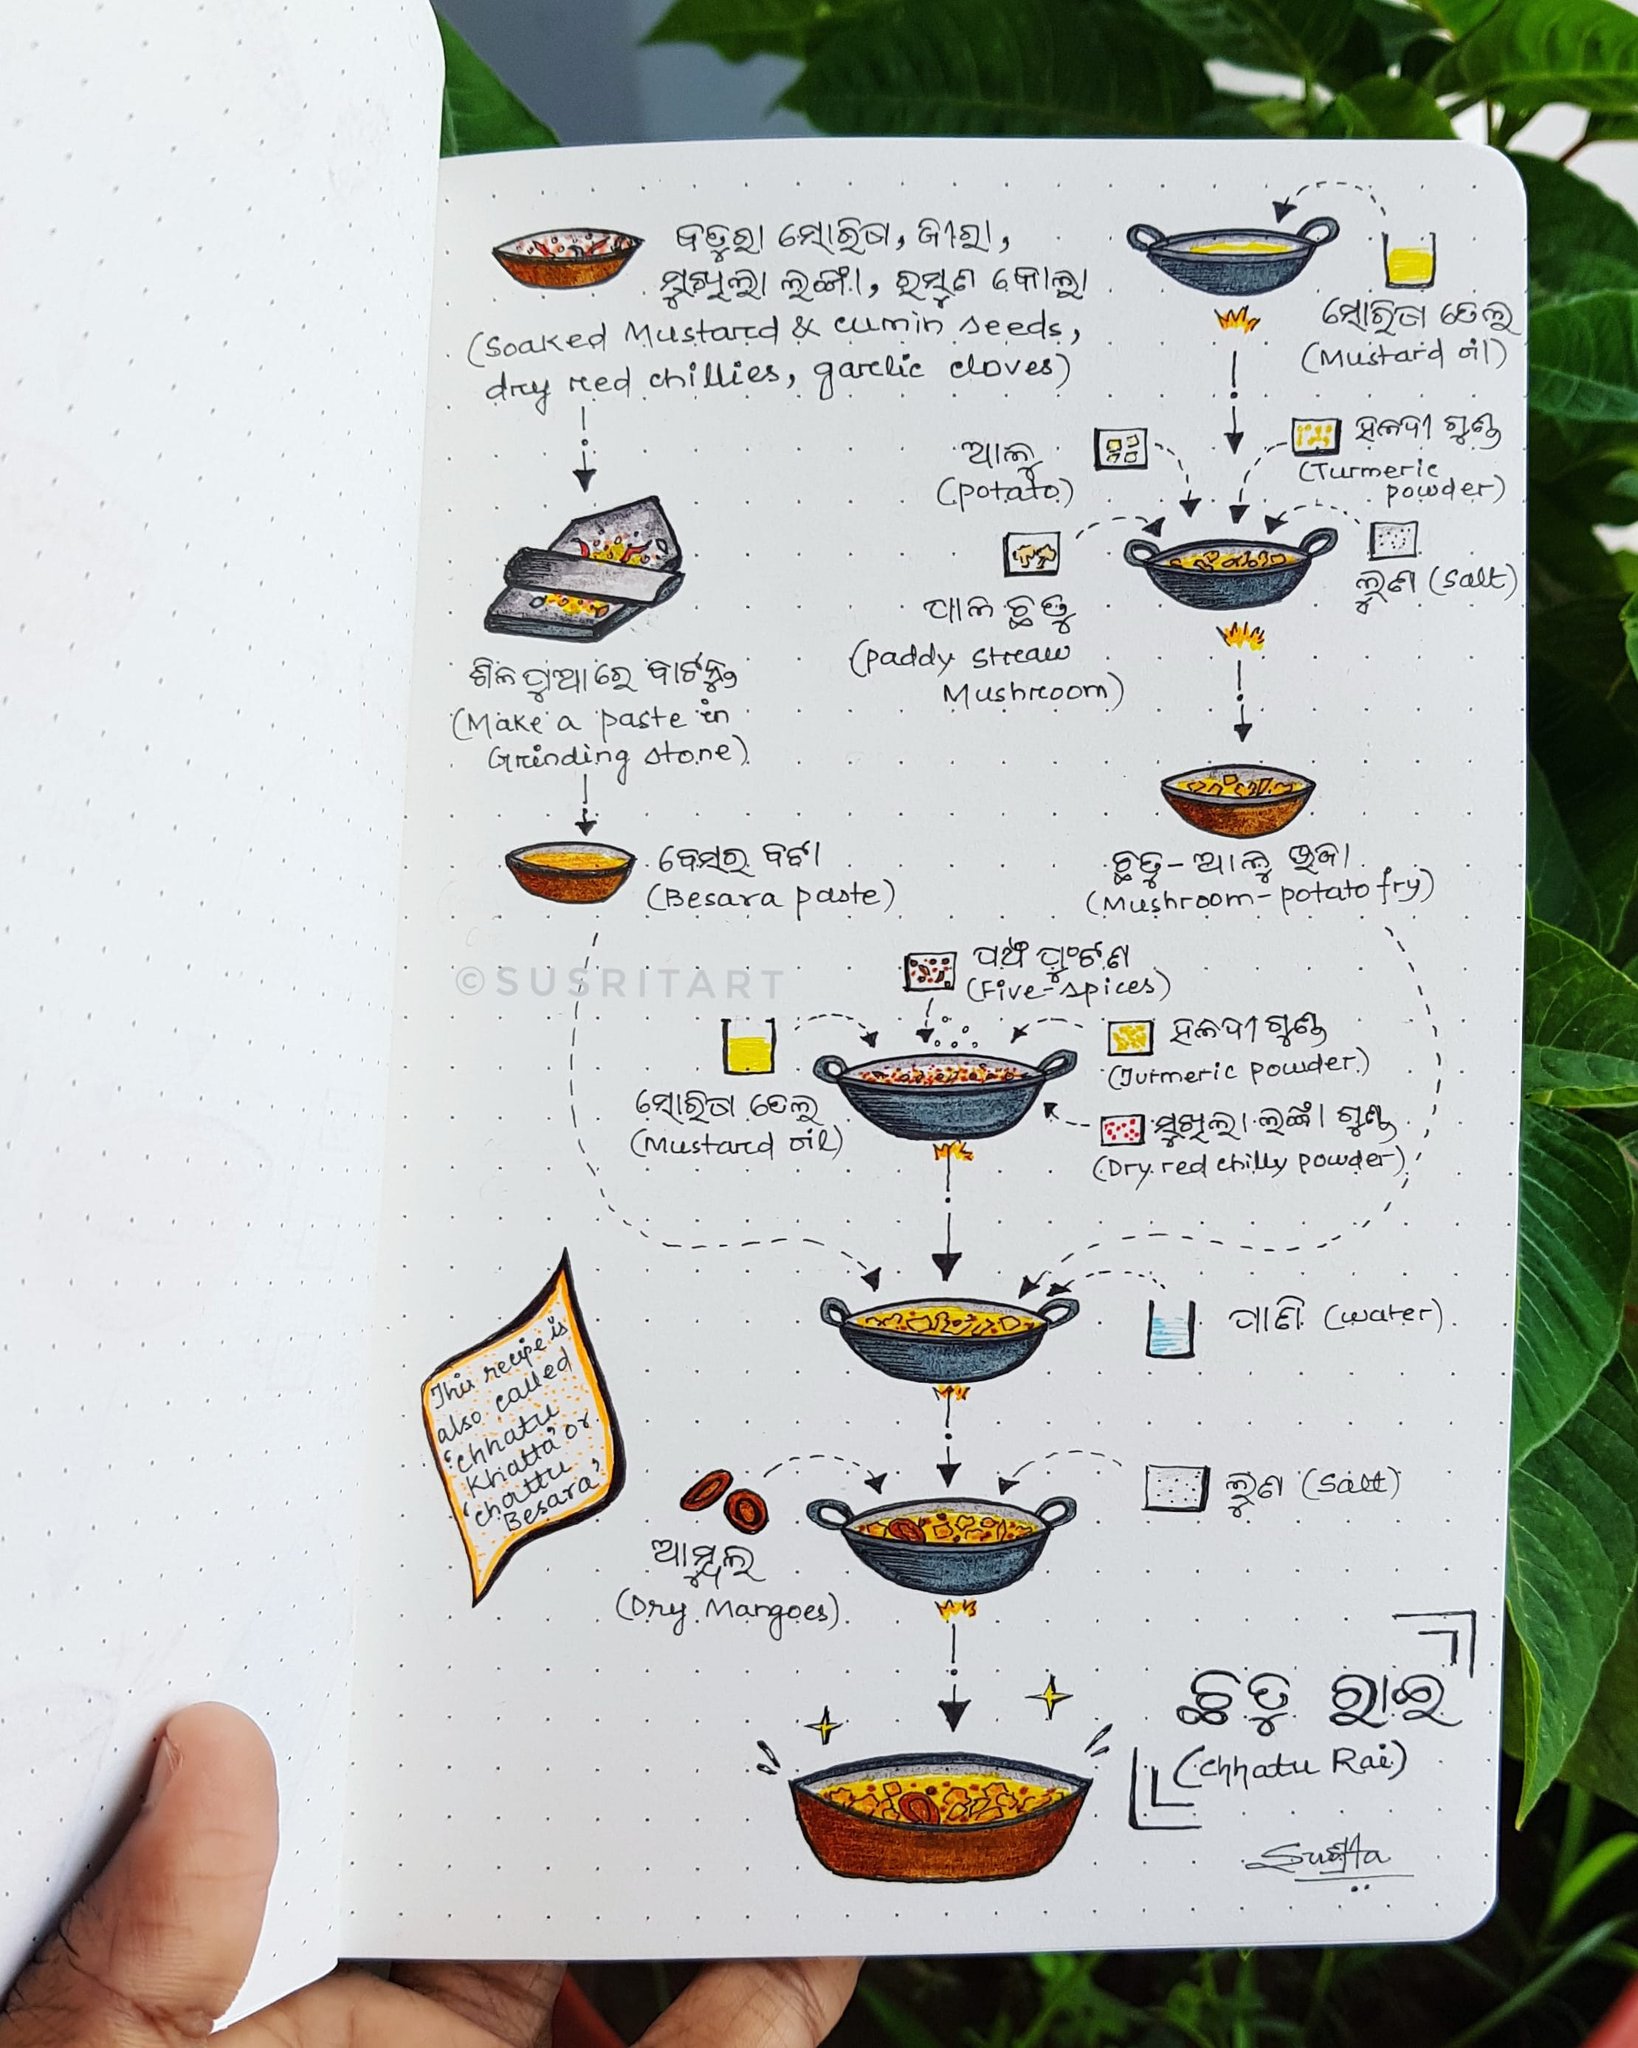 ବତୁରା ସୋରିଷ, ଜୀରା,
ସୁଖିଲା ଲଙ୍କା, ରସୁଣ କୋଲା
(Soaked Mustard & cumin seeds,
dry red chillies, garlic cloves)
ଶିଳ ପୁଆରେ ବାଟନ୍ତୁ
(Make a paste in
Grinding stone)
ବେସର ବଟା
(Besara paste)
ସୋରିଷ ତେଲ
(Mustard oil)
ଆଳୁ
(potato)
ହଳଦୀ ଗୁଣ୍ଡ
(Turmeric
powder)
ପାଳ ଛତୁ
(paddy straw
Mushroom)
ଲୁଣ (salt)
ଛତୁ-ଆଳୁ ଭଜା
(Mushroom-potato fry)
©SUSRITART
ପଞ୍ଚ ଫୁଟଣ
(Five-spices)
ସୋରିଷ ତେଲ
(Mustard oil)
ହଳଦୀ ଗୁଣ୍ଡ
(Turmeric powder)
ସୁଖିଲା ଲଙ୍କା ଗୁଣ୍ଡ
(Dry red chilly powder)
ପାଣି (water)
This recipe is
also called
'chhatu
Khatta' or
'chattu
Besara'
ଆମ୍ବୁଲ
(Dry Mangoes)
ଲୁଣ (salt)
ଛତୁ ରାଇ
(Chhatu Rai)